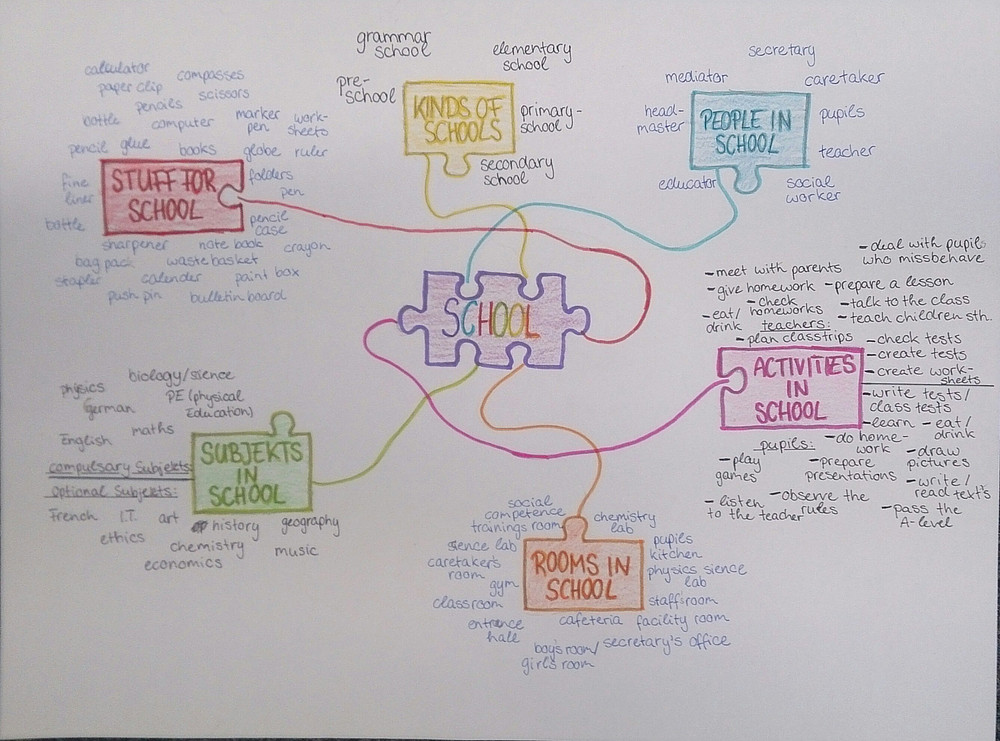 SCHOOL
KINDS OF
SCHOOLS
grammar
school
elementary
school
pre-
school
primary-
school
secondary
school
PEOPLE IN
SCHOOL
secretary
mediator
caretaker
head-
master
pupils
teacher
educator
social
worker
STUFF FOR
SCHOOL
calculator
compasses
paper clip
scissors
pencils
marker
pen
work-
sheets
bottle
computer
pencil
glue
books
globe
ruler
fine
liner
folders
pen
bottle
pencil
case
sharpener
note book
crayon
bag pack
waste basket
stapler
calender
paint box
push pin
bulletin board
ACTIVITIES
IN
SCHOOL
- deal with pupils
who missbehave
- meet with parents
- give homework
- prepare a lesson
- check
homeworks
- talk to the class
- eat/
drink
- teach children sth.
teachers:
- plan classtrips
- check tests
- create tests
- create work-
sheets
- write tests/
class tests
- learn
- eat/
drink
pupils:
- do home-
work
- draw
pictures
- play
games
- prepare
presentations
- write/
read text's
- listen
to the teacher
- observe the
rules
- pass the
A-level
SUBJEKTS
IN
SCHOOL
biology/sience
phisics
PE (physical
Education)
german
English
maths
compulsary Subjekts:
optional Subjekts:
French
I.T.
art
history
geography
ethics
chemistry
music
economics
ROOMS IN
SCHOOL
social
competence
trainings room
chemistry
lab
sience lab
pupils
kitchen
caretaker's
room
physics sience
lab
gym
classroom
staff'sroom
entrence
hale
cafeteria
facility room
boy's room/
girl's room
secretary's office